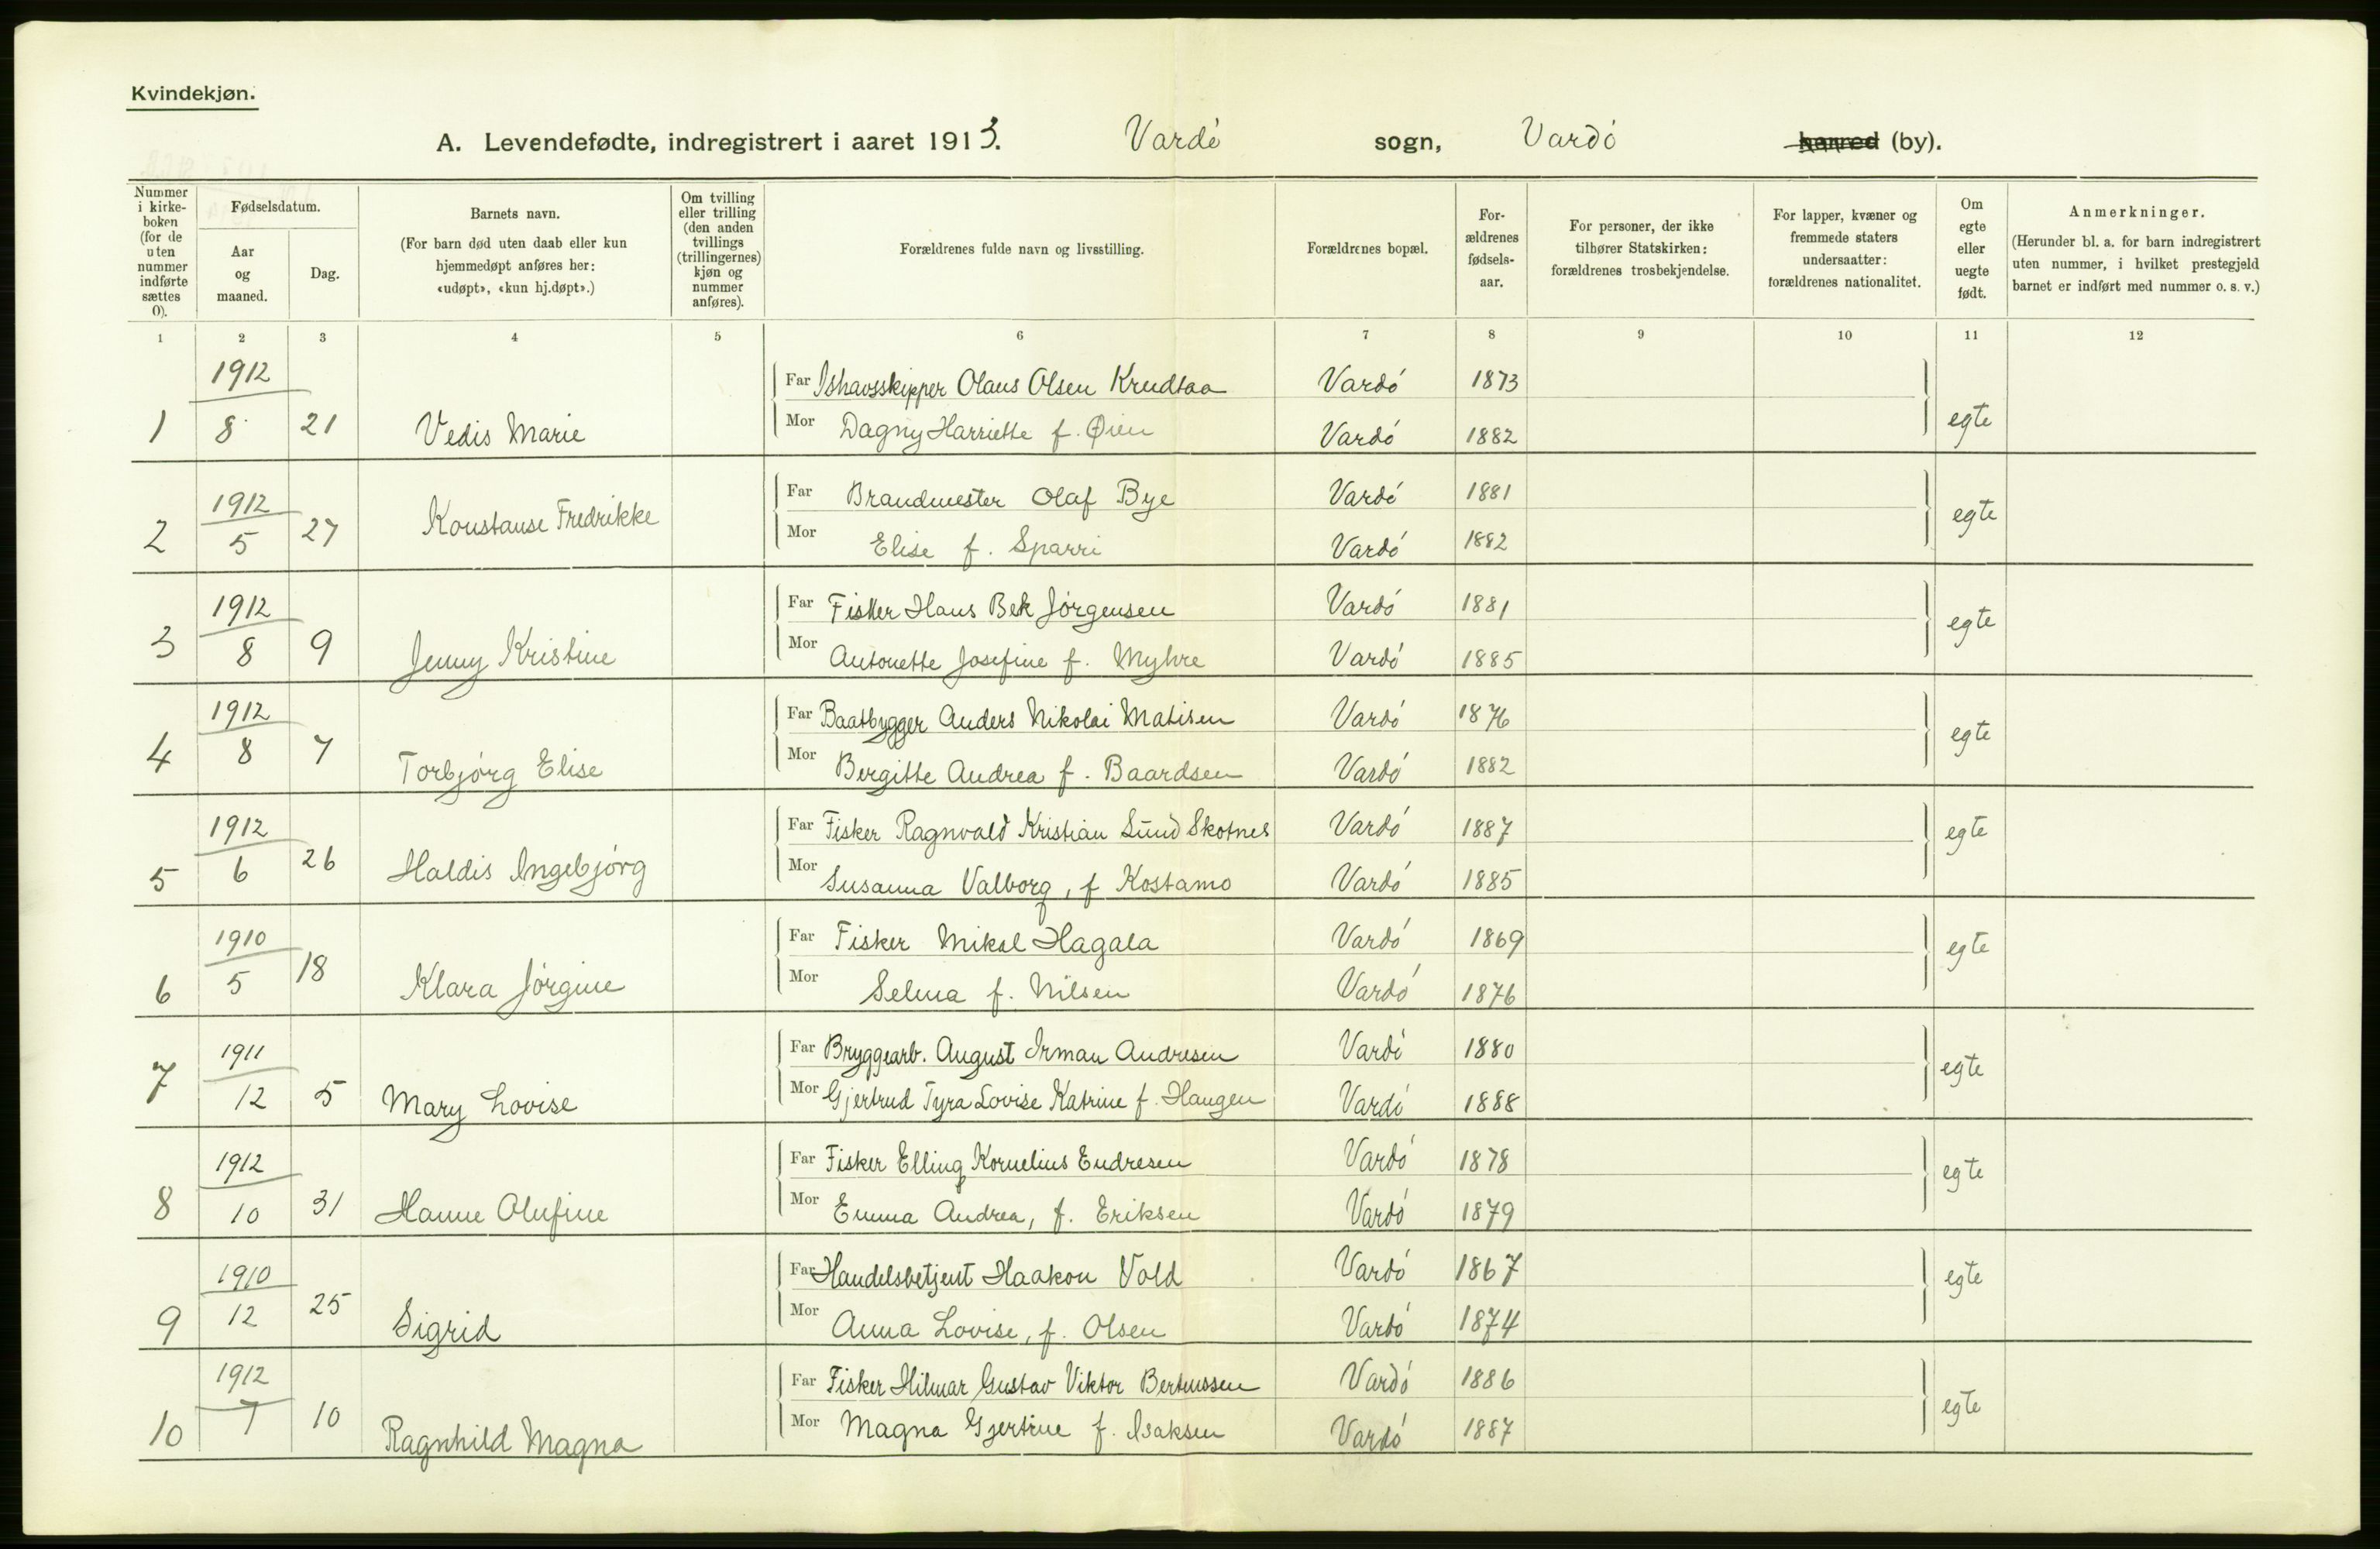 Kvindekjøn.
A. Levendefødte, indregistrert i aaret 1913. Vardø sogn, Vardø herred (by).
Nummer i kirke-boken (for de uten nummer indførte sættes 0).
Fødselsdatum.
Aar og maaned.
Dag.
Barnets navn.
(For barn død uten daab eller kun hjemmedøpt anføres her: «udøpt», «kun hj.døpt».)
Om tvilling eller trilling (den anden tvillings (trillingernes) kjøn og nummer anføres).
Forældrenes fulde navn og livsstilling.
Forældrenes bopæl.
For-ældrenes fødsels-aar.
For personer, der ikke tilhører Statskirken: forældrenes trosbekjendelse.
For lapper, kvæner og fremmede staters undersaatter: forældrenes nationalitet.
Om egte eller uegte født.
Anmerkninger.
(Herunder bl. a. for barn indregistrert uten nummer, i hvilket prestegjeld barnet er indført med nummer o. s. v.)
1 2 3 4 5 6 7 8 9 10 11 12
1912 Far Ishavsskipper Olaus Olsen Krudtaa Vardø 1873
1 8 21 Vedis Marie Mor Dagny Harriette f. Øien Vardø 1882 egte
1912 Far Brandmester Olaf Bye Vardø 1881
2 5 27 Konstanse Fredrikke Mor Elise f. Sparri Vardø 1882 egte
1912 Far Fisker Hans Bek Jørgensen Vardø 1881
3 8 9 Jenny Kristine Mor Antonette Josefine f. Myhre Vardø 1885 egte
1912 Far Baatbygger Anders Nikolai Matisen Vardø 1876
4 8 7 Torbjørg Elise Mor Bergitte Andrea f. Baardsen Vardø 1882 egte
1912 Far Fisker Ragnvald Kristian Lund Skotnes Vardø 1887
5 6 26 Haldis Ingebjørg Mor Susanna Valborg, f Kostamo Vardø 1885 egte
1910 Far Fisker Mikal Hagala Vardø 1869
6 5 18 Klara Jørgine Mor Selma f. Nilsen Vardø 1876 egte
1911 Far Bryggearb. August Irman Andresen Vardø 1880
7 12 5 Mary Lovise Mor Gjertrud Tyra Lovise Katrine f. Haugen Vardø 1888 egte
1912 Far Fisker Elling Kornelius Endresen Vardø 1878
8 10 31 Hanne Olufine Mor Emma Andrea, f. Eriksen Vardø 1879 egte
1910 Far Handelsbetjent Haakon Vold Vardø 1867
9 12 25 Sigrid Mor Anna Lovise, f. Olsen Vardø 1874 egte
1912 Far Fisker Hilmar Gustav Viktor Berthussen Vardø 1886
10 7 10 Ragnhild Magna Mor Magna Gjertine f. Isaksen Vardø 1887 egte